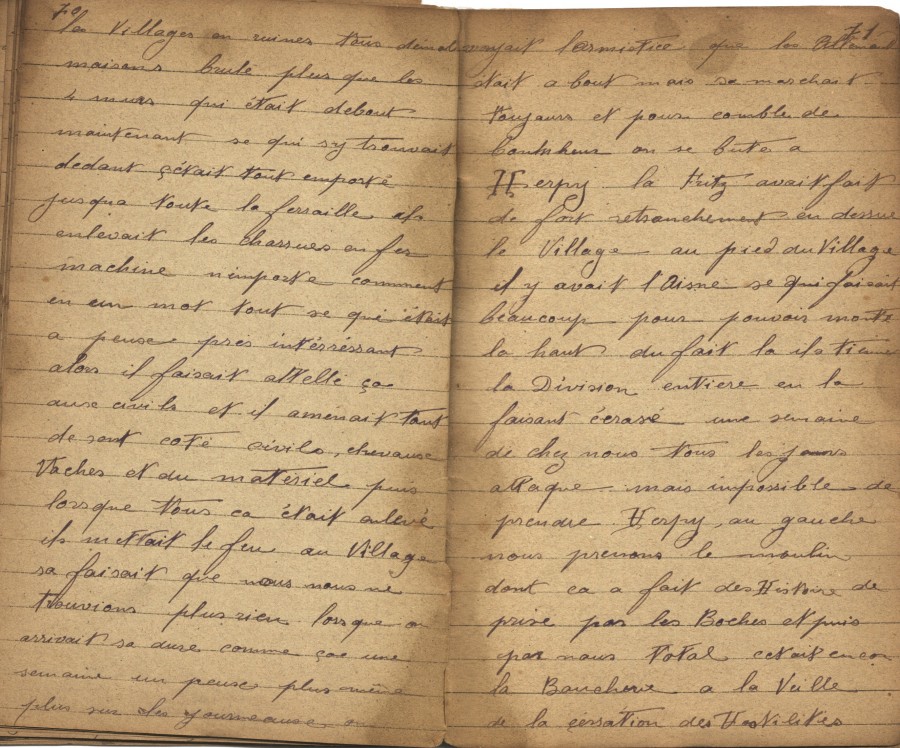 70
les Villages en ruines tous démol
maisons brulé plus que les
4 murs qui était debout
maintenant se qui s'y trouvait
dedant s'était tout emporté
jusqua toute la ferraille ils
enlevait les charrues en fer
machine n'importe comment
en un mot tout se qui était
a peuse pres intérréssant
alors il faisait attellé ça
aux civils et il aménait tout
de sont coté civils, chevause
Vaches et du matériel puis
lorsque tous ca était enlevé
ils mettait le feu au Village
sa faisait que nous nous ne
trouvions plus rien lorsque on
arrivait sa dure comme ça une
semaine un peuse plus même
plus sur les journeause on
71
voyait l'armictice que les
était a bout mais sa marchait
toujours et pour comble de
bonheur on se bute a
Herpy la Fritz avait fait
de fort retranchement en dessus
le Village au pied du Village
il y avait l'Aisne se qui faisait
beaucoup pour pouvoir monte
la haut du fait la
la Division entiere en la
faisant écrasé une semaine
de chez nous tous les jours
attaque mais impossible de
prendre Herpy, au gauche
nous prenons le moulin
dont ca a fait des Histoire de
prise par les Boches et puis
par nous total cetait encor
la Boucherie a la Veille
de la cérsation des Hostilités